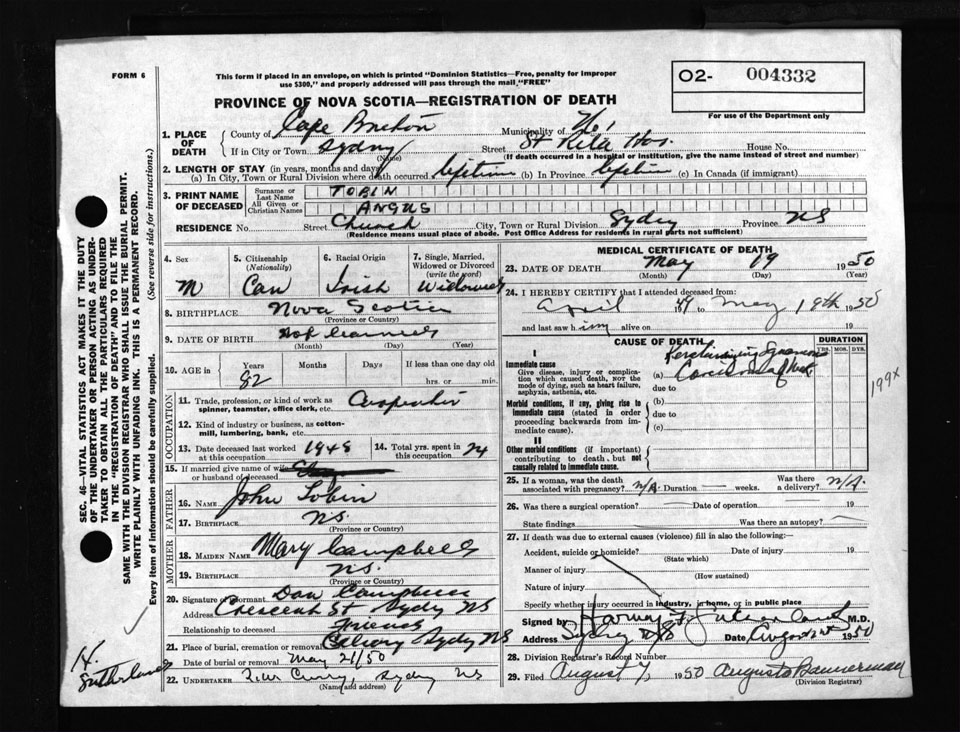 FORM 6
This form if placed in an envelope, on which is printed "Dominion Statistics—Free, penalty for improper
use $300," and properly addressed will pass through the mail "FREE"
O2- 004332
For use of the Department only
PROVINCE OF NOVA SCOTIA—REGISTRATION OF DEATH
1. PLACE OF DEATH
County of Cape Breton Municipality of No 1
If in City or Town Sydney (Name) Street St Rita Hos. House No.
(If death occurred in a hospital or institution, give the name instead of street and number)
2. LENGTH OF STAY (in years, months and days)
(a) In City, Town or Rural Division where death occurred lifetime (b) In Province lifetime (c) In Canada (if immigrant)
3. PRINT NAME OF DECEASED
Surname or Last Name TOBIN
All Given or Christian Names ANGUS
RESIDENCE No. Street Church City, Town or Rural Division Sydney Province NS
(Residence means usual place of abode. Post Office Address for residents in rural parts not sufficient)
4. Sex M
5. Citizenship (Nationality) Can
6. Racial Origin Irish
7. Single, Married, Widowed or Divorced (write the word) Widowed
8. BIRTHPLACE Nova Scotia
(Province or Country)
9. DATE OF BIRTH
(Month) (Day) (Year)
10. AGE in Years 82 Months Days If less than one day old
hrs. or min.
OCCUPATION
11. Trade, profession or kind of work as spinner, teamster, office clerk, etc. Carpenter
12. Kind of industry or business, as cotton-mill, lumbering, bank, etc.
13. Date deceased last worked at this occupation 1948
14. Total yrs. spent in this occupation 74
15. If married give name of wife or husband of deceased
FATHER
16. Name John Tobin
17. Birthplace NS.
(Province or Country)
MOTHER
18. Maiden Name Mary Campbell
19. Birthplace NS.
(Province or Country)
20. Signature of Informant Dan Campbell
Address Crescent St Sydney NS
Relationship to deceased Friend
21. Place of burial, cremation or removal Calvary Sydney NS
Date of burial or removal May 21/50
22. UNDERTAKER Curry, Sydney NS
(Name and address)
MEDICAL CERTIFICATE OF DEATH
23. DATE OF DEATH May 19 1950
(Month) (Day) (Year)
24. I HEREBY CERTIFY that I attended deceased from:
April 49 to May 19th 1950
and last saw him alive on 19
CAUSE OF DEATH
DURATION
YRS. MOS. DYS.
I
Immediate cause
Give disease, injury or complication which caused death, not the mode of dying, such as heart failure, asphyxia, asthenia, etc.
(a) Carcinoma of Neck
due to
Morbid conditions, if any, giving rise to immediate cause (stated in order proceeding backwards from immediate cause).
(b)
due to
(c)
II
Other morbid conditions (if important) contributing to death, but not causally related to immediate cause.
199x
25. If a woman, was the death associated with pregnancy? N/A. Duration weeks. Was there a delivery? N/A.
26. Was there a surgical operation? Date of operation 19
State findings Was there an autopsy?
27. If death was due to external causes (violence) fill in also the following:—
Accident, suicide or homicide? Date of injury 19
(State which)
Manner of injury
(How sustained)
Nature of injury
Specify whether injury occurred in industry, in home, or in public place
Signed by Harvey F. Sutherland M.D.
Address Sydney NS Date August 1950
28. Division Registrar's Record Number
29. Filed August 7, 1950 Augusta Bannerman
(Division Registrar)
SEC. 46—VITAL STATISTICS ACT MAKES IT THE DUTY
OF THE UNDERTAKER OR PERSON ACTING AS UNDER-
TAKER TO OBTAIN ALL THE PARTICULARS REQUIRED
IN THE "REGISTRATION OF DEATH" AND TO FILE THE
SAME WITH THE DIVISION REGISTRAR WHO SHALL ISSUE THE BURIAL PERMIT.
WRITE PLAINLY WITH UNFADING INK. THIS IS A PERMANENT RECORD.
Every item of information should be carefully supplied. (See reverse side for instructions.)
H. Sutherland